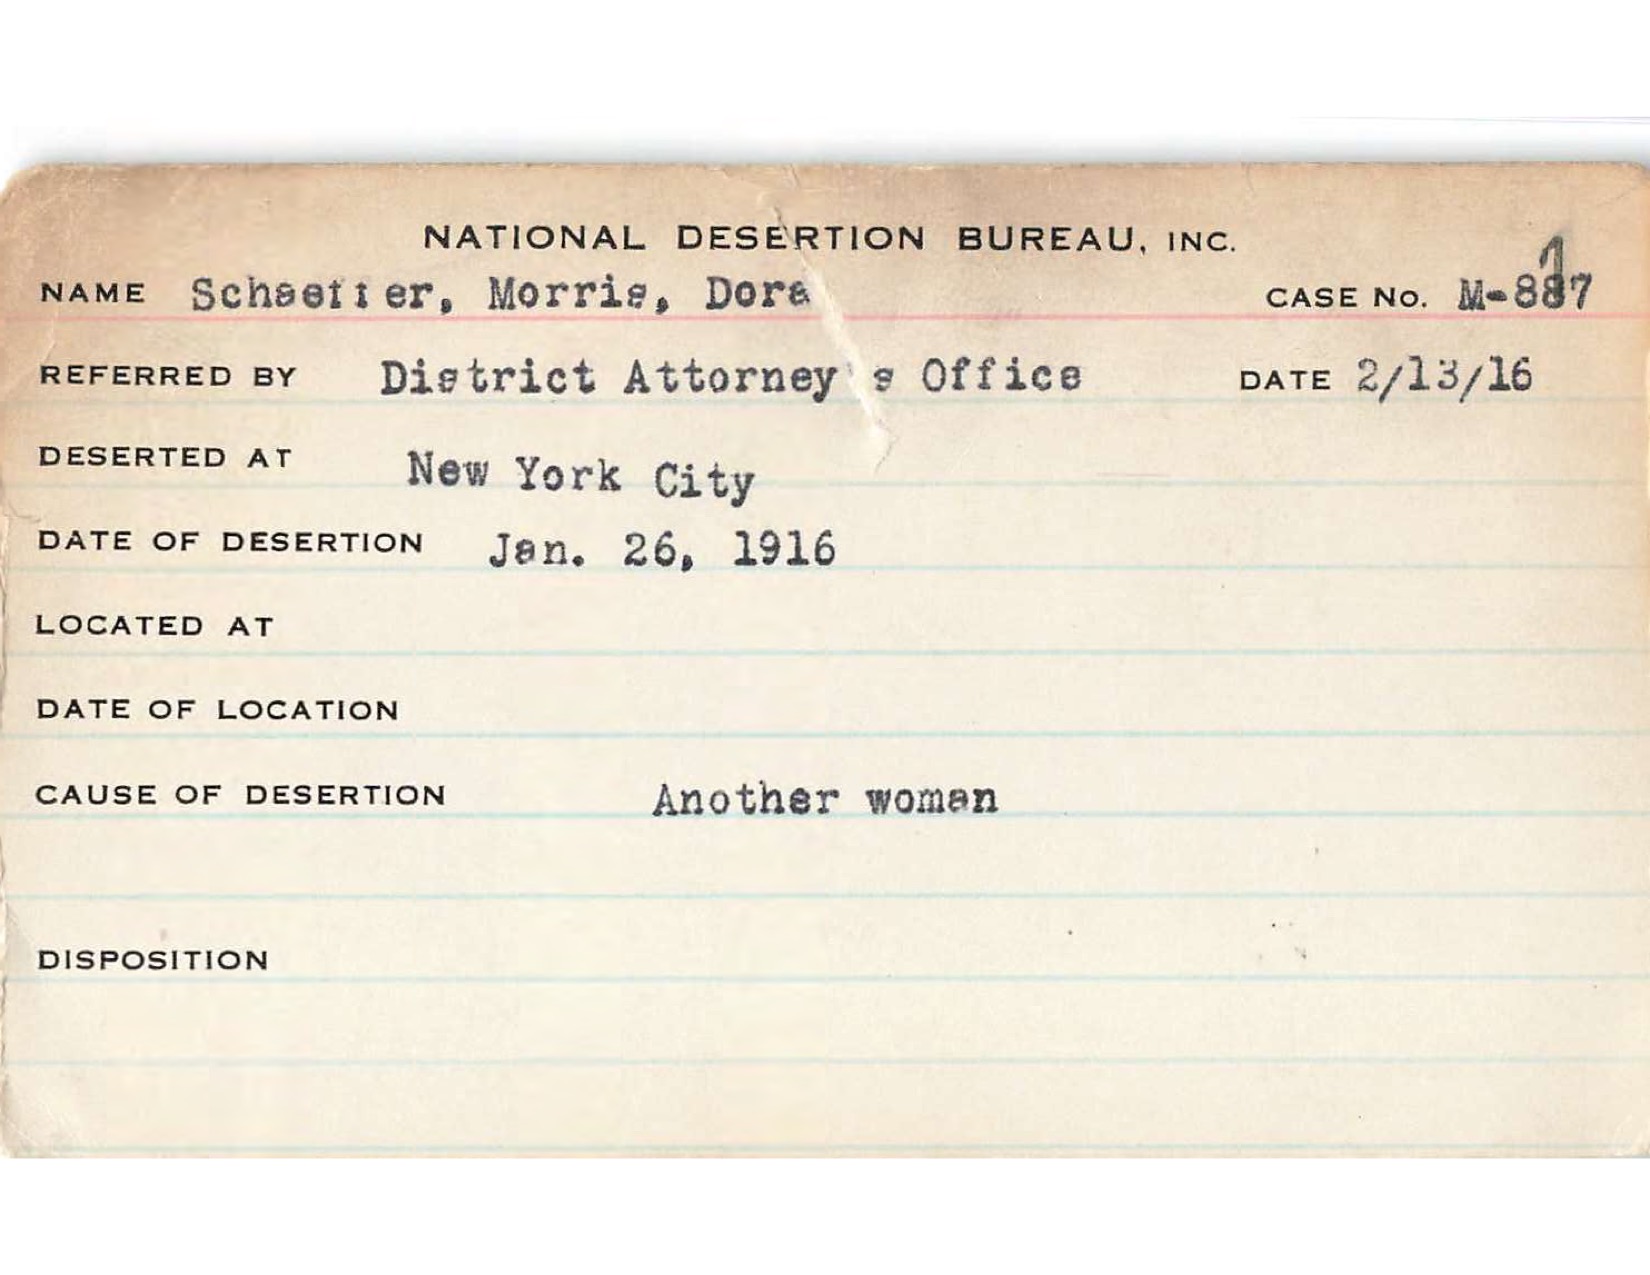 NATIONAL DESERTION BUREAU, INC.
NAME Schaeffer, Morris, Dora CASE No. M-887
REFERRED BY District Attorney's Office DATE 2/13/16
DESERTED AT New York City
DATE OF DESERTION Jan. 26, 1916
LOCATED AT
DATE OF LOCATION
CAUSE OF DESERTION Another woman
DISPOSITION